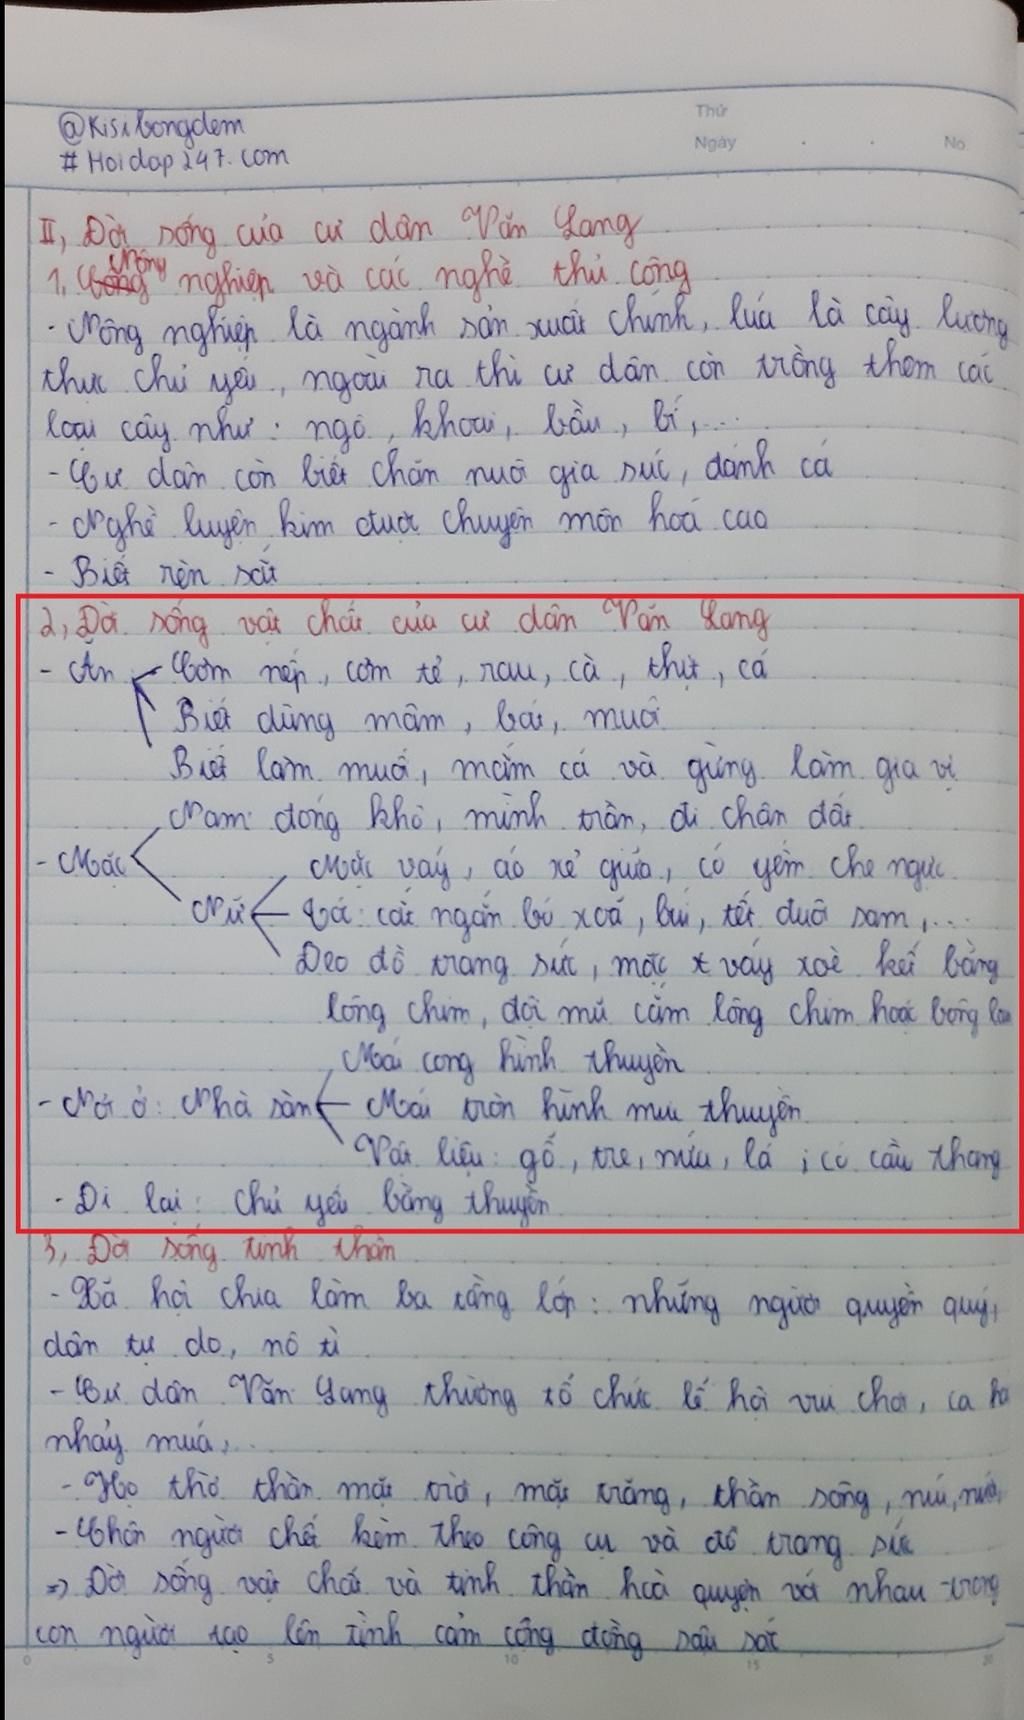 @Kisibongdem
#Hoidap247.com
Thứ
Ngày . . No
II, Đời sống của cư dân Văn Lang
Nông
1, nghiệp và các nghề thủ công
- Nông nghiệp là ngành sản xuất chính, lúa là cây lương
thực chủ yếu, ngoài ra thì cư dân còn trồng thêm các
loại cây như: ngô, khoai, bầu, bí,...
- Cư dân còn biết chăn nuôi gia súc, đánh cá
- Nghề luyện kim được chuyên môn hoá cao
- Biết rèn sắt
2, Đời sống vật chất của cư dân Văn Lang
- Ăn Cơm nếp, cơm tẻ, rau, cà, thịt, cá
Biết dùng mâm, bát, muôi
Biết làm muối, mắm cá và gừng làm gia vị
Nam: đóng khố, mình trần, đi chân đất
- Mặc Mặc váy, áo xẻ giữa, có yếm che ngực
Nữ Tóc: cắt ngắn bỏ xoã, búi, tết đuôi sam,...
Đeo đồ trang sức, mặc váy xoè kết bằng
lông chim, đội mũ cắm lông chim hoặc bông lau
Mái cong hình thuyền
- Nơi ở: Nhà sàn Mái tròn hình mui thuyền
Vật liệu: gỗ, tre, nứa, lá; có cầu thang
- Đi lại: chủ yếu bằng thuyền
3, Đời sống tinh thần
- Xã hội chia làm ba tầng lớp: những người quyền quý,
dân tự do, nô tì
- Cư dân Văn Lang thường tổ chức lễ hội vui chơi, ca há
nhảy múa,...
- Họ thờ thần mặt trời, mặt trăng, thần sông, núi, nước,
- Chôn người chết kèm theo công cụ và đồ trang sức
=> Đời sống vật chất và tinh thần hoà quyện với nhau trong
con người tạo lên tình cảm cộng đồng sâu sắc
0 5 10 15 20